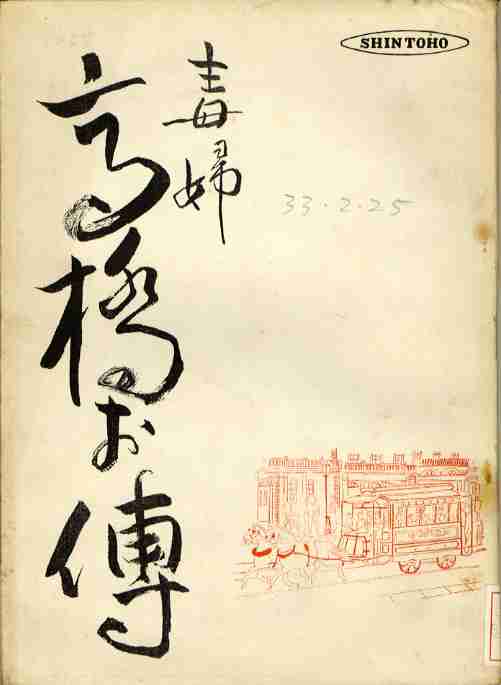 SHINTOHO
毒婦
高橋お傳
33・2・25